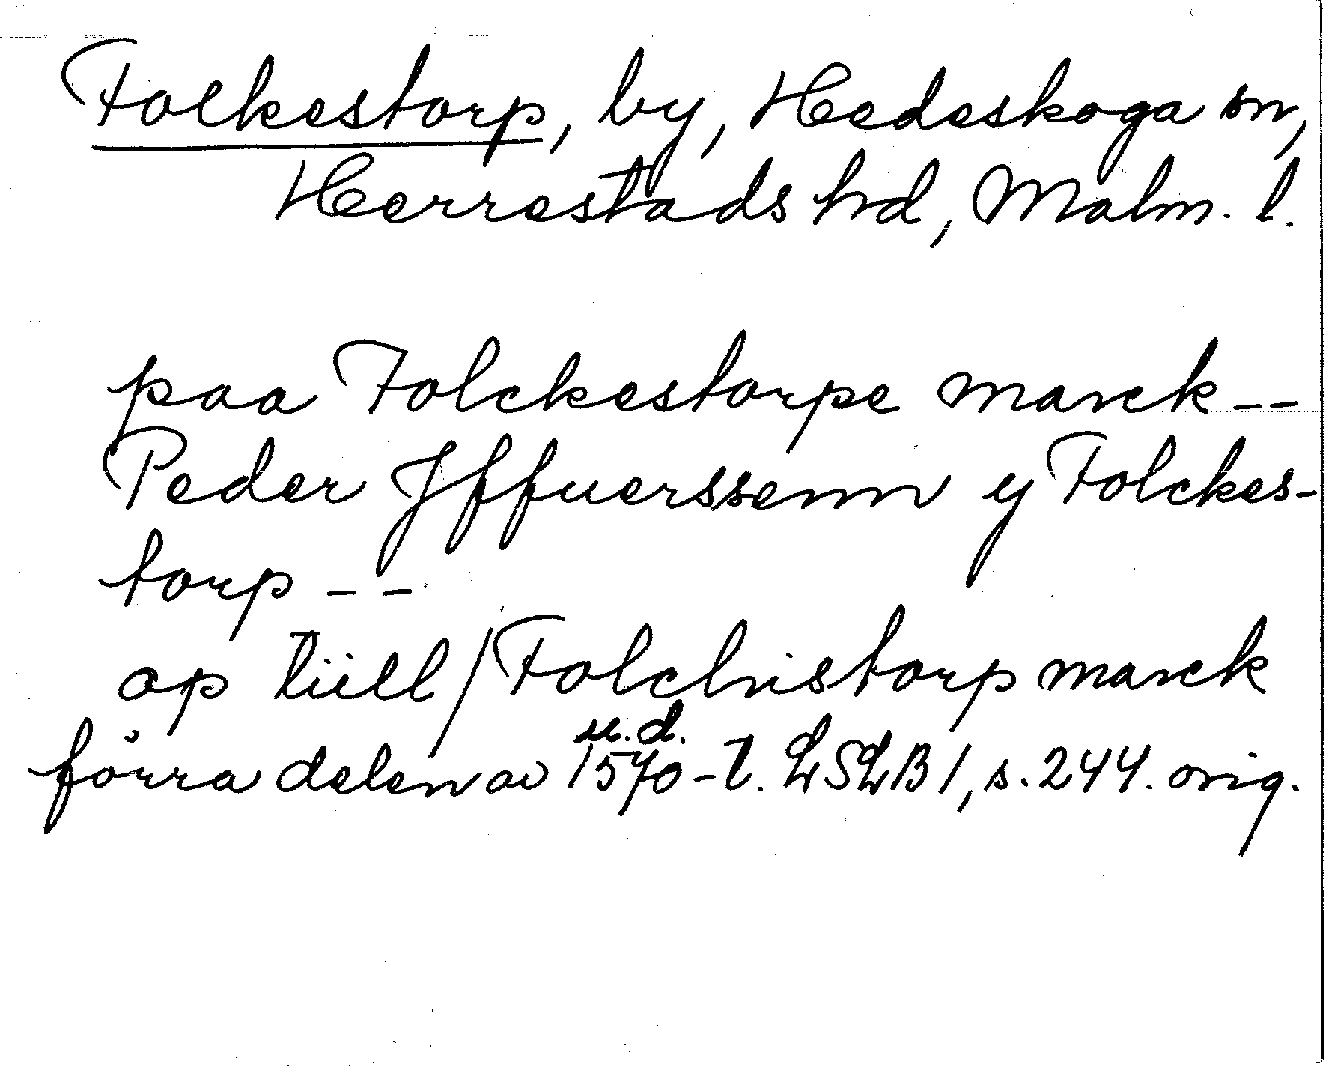 Folkestorp, by, Hedeskoga sn,
Herrestads hd, Malm. l.
paa Folckestorpe marck --
Peder Jffuerssenn y Folckes-
torp --
op tiill / Folchistorp marck
u. d.
förra delen av 1570-t. LSLB 1, s. 244. orig.